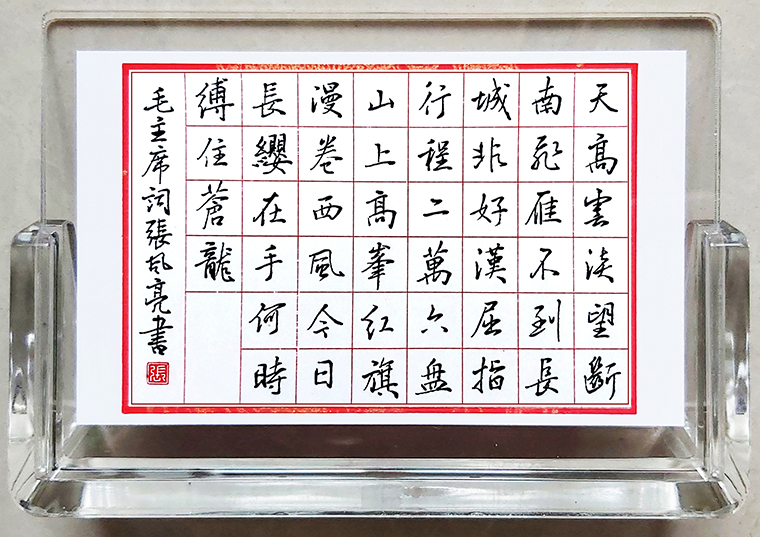 天高雲淡望斷
南飛雁不到長
城非好漢屈指
行程二萬六盤
山上高峯紅旗
漫卷西風今日
長纓在手何時
縛住蒼龍
毛主席詞張風亮書
張